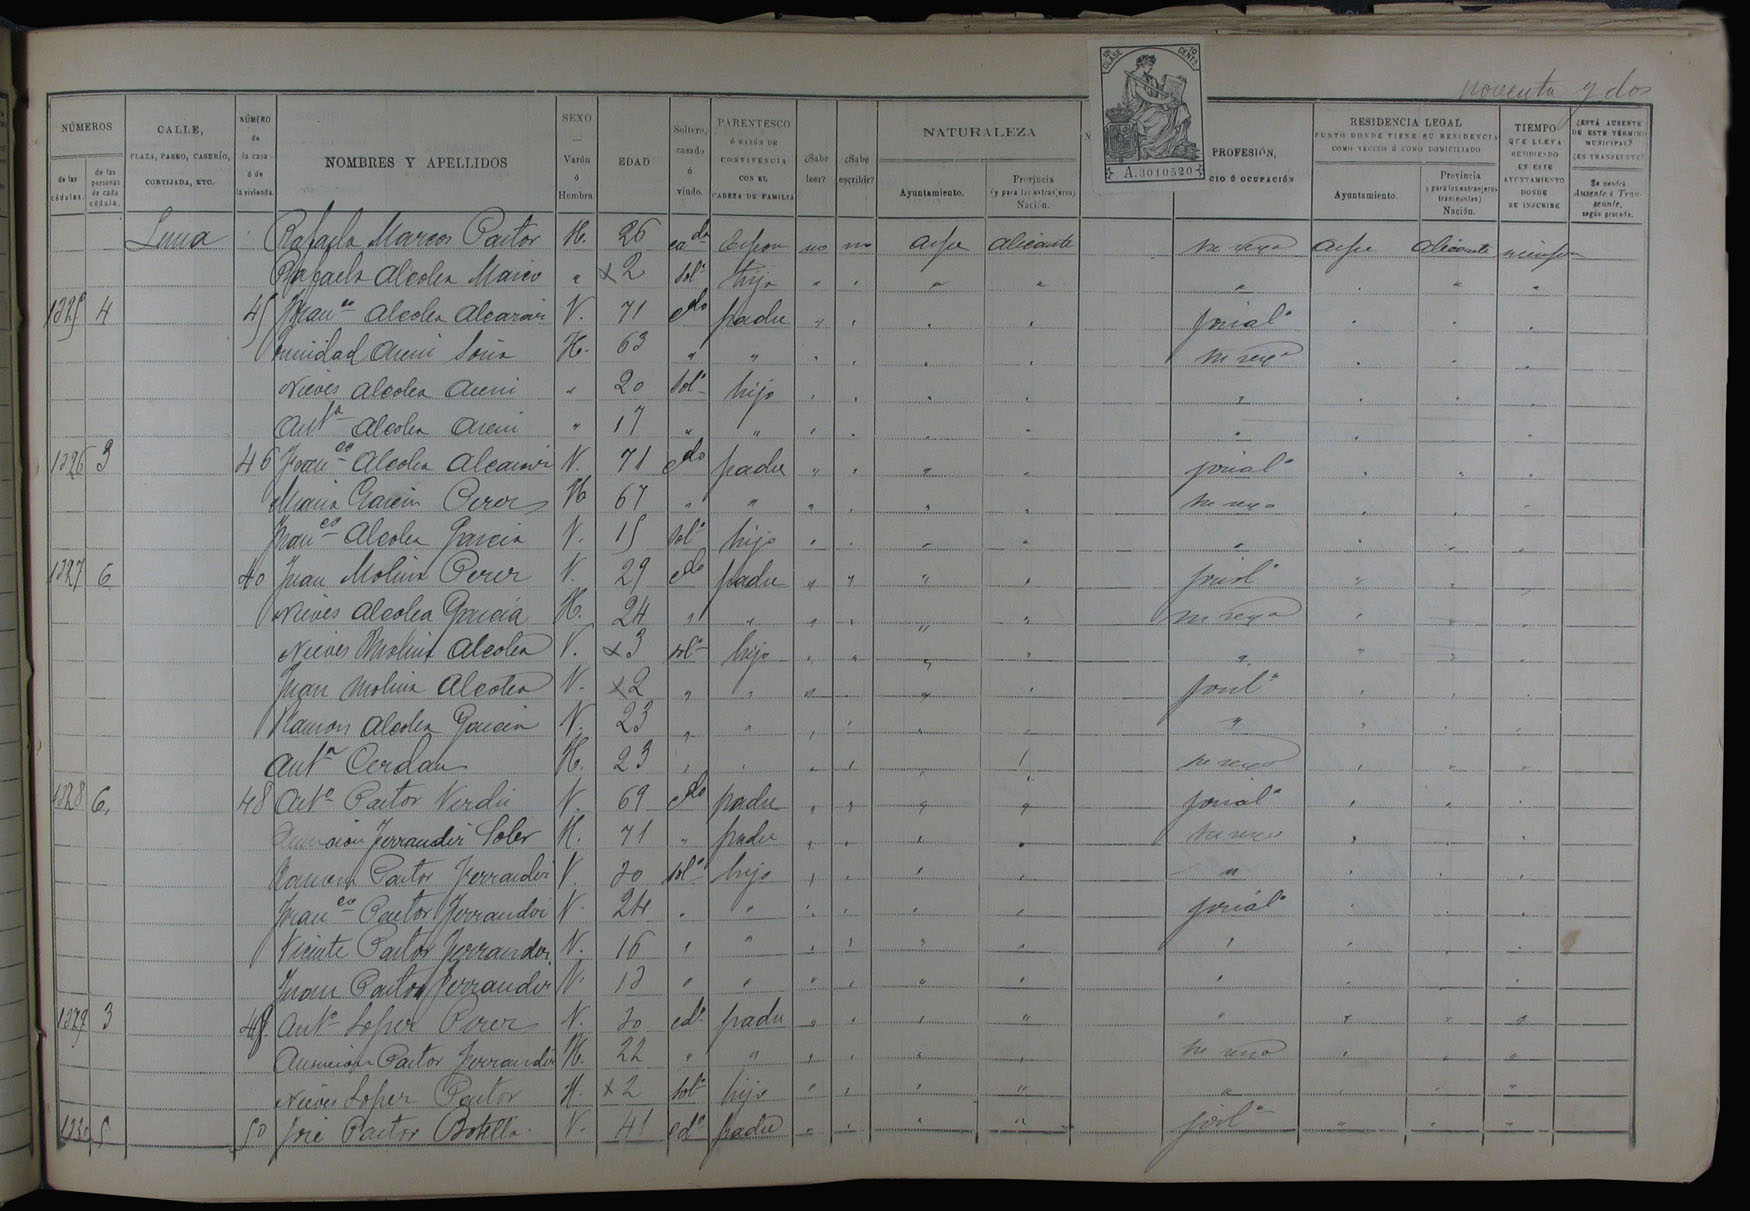 noventa y dos
10ª CLASE 10 CENTS
A.3010520
NÚMEROS
de las cédulas.
de las personas de cada cédula.
CALLE,
PLAZA, PASEO, CASERÍO,
CORTIJADA, ETC.
NÚMERO
de
la casa
ó de
la vivienda.
NOMBRES Y APELLIDOS
SEXO
Varón
ó
Hembra
EDAD
Soltero,
casado
ó
viudo.
PARENTESCO
Ó RAZÓN DE
CONVIVENCIA
CON EL
CABEZA DE FAMILIA
¿Sabe
leer?
¿Sabe
escribir?
NATURALEZA
Ayuntamiento.
Provincia
(y para los extranjeros)
Nación.
PROFESIÓN,
CIO Ú OCUPACIÓN
RESIDENCIA LEGAL
PUNTO DONDE TIENE SU RESIDENCIA
COMO VECINO Ó COMO DOMICILIADO
Ayuntamiento.
Provincia
y para los extranjeros
transeuntes)
Nación.
TIEMPO
QUE LLEVA
RESIDIENDO
EN ESTE
AYUNTAMIENTO
DONDE
SE INSCRIBE
¿ESTÁ AUSENTE
DE ESTE TÉRMINO
MUNICIPAL?
¿ES TRANSEUNTE?
Se pondrá
Ausente ó Tran-
seunte,
según proceda.
Luna Rafaela Marcos Pastor H. 26 cada Espos no no Aspe Alicante su sexo Aspe Alicante siempre
Rafaela Alcolea Marco " x2 solª hija " " " " " " " "
1325 4 45 Franco Alcolea Alcaraz V. 71 cdo padre " " " " jornalº " " "
Trinidad Soria H. 63 " " " " " " su sexo " " "
Nieves Alcolea " 20 solª hija " " " " " " " "
Antª Alcolea " 17 " " " " " " " " " "
1326 3 46 Franco Alcolea Alcaraz V. 71 cdo padre " " " " jornalº " " "
Maria Garcia Perez H 67 " " " " " " su sexo " " "
Franco Alcolea Garcia V. 15 solº hijo " " " " " " " "
1327 6 40 Juan Molina Perez V. 29 cdo padre " " " " jornlº " " "
Nieves Alcolea Garcia H. 24 " " " " " " su sexo " " "
Nieves Molina Alcolea V. x3 solº hijo " " " " " " " "
Juan Molina Alcolea V. x2 " " " " " " jornlº " " "
Ramon Alcolea Garcia V. 23 " " " " " " " " " "
Antª Cerdan H. 23 " " " " " " su sexo " " "
1328 6 48 Antº Pastor Verdú V. 69 cdo padre " " " " jornalº " " "
Asuncion Ferrandiz Soler H. 71 " padre " " " " su sexo " " "
Ramon Pastor Ferrandiz V. 30 solº hijo " " " " " " " "
Franco Pastor Ferrandiz V. 24 " " " " " " jornalº " " "
Vicente Pastor Ferrandiz V. 16 " " " " " " " " " "
Juan Pastor Ferrandiz V. 13 " " " " " " " " " "
1329 3 49 Antº Lopez Perez V. 30 cdº padre " " " " " " " "
Asuncion Pastor Ferrandiz H. 22 " " " " " " su sexo " " "
Nieves Lopez Pastor H. x2 solª hija " " " " " " " "
1330 5 50 José Pastor Botella V. 41 cdº padre " " " " jornlº " " "